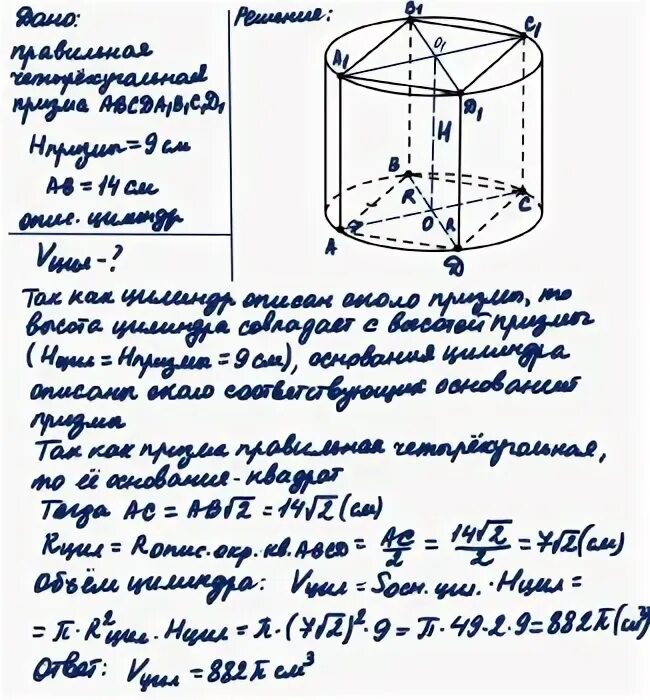 Дано:
правильная
четырёхугольная
призма ABCDA₁B₁C₁D₁
Hпризмы = 9 см
AB = 14 см
опис. цилиндр
Vцил - ?
Решение:
B₁
C₁
A₁
O₁
Д₁
H
B
R
C
O
R
A
Д
Так как цилиндр описан около призмы, то
высота цилиндра совпадает с высотой призмы
(Hцил = Hпризмы = 9 см), основания цилиндра
описаны около соответствующих оснований
призмы
Так как призма правильная четырёхугольная,
то её основания - квадрат
Тогда AC = AB√2 = 14√2 (см)
Rцил = Rопис. окр. кв. ABCD = AC/2 = 14√2/2 = 7√2 (см)
Объём цилиндра: Vцил = Sосн. цил. · Hцил =
= π · R²цил · Hцил = π · (7√2)² · 9 = π · 49 · 2 · 9 = 882π (см³)
Ответ: Vцил = 882π см³